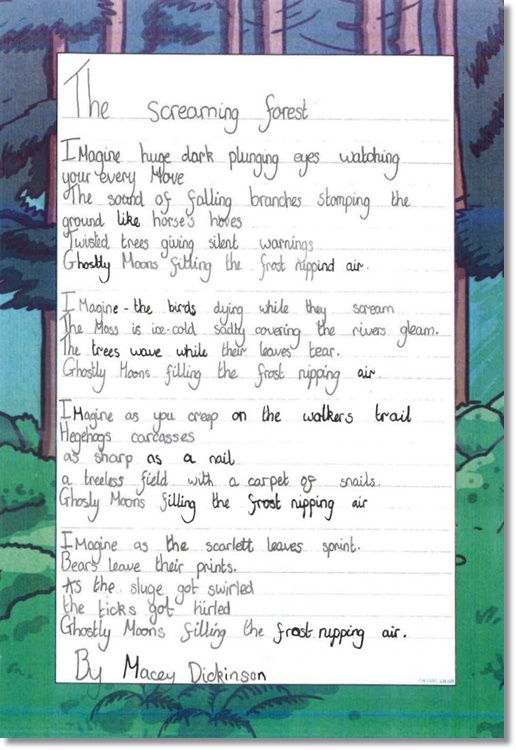 The screaming forest
Imagine huge dark plunging eyes watching
your every move
The sound of falling branches stomping the
ground like horse's hoves
Twisted trees giving silent warnings
Ghostly Moons filling the frost nippind air.
I Magine - the birds dying while they scream
The Moss is ice-cold sadly covering the rivers gleam.
The trees wave while their leaves tear.
Ghostly Moons filling the frost nipping air.
IMagine as you creep on the walkers trail
Hegehogs carcasses
as sharp as a nail
a treeless field with a carpet of snails.
Ghosly Moons filling the frost nipping air
IMagine as the scarlett leaves sprint.
Bears leave their prints.
As the sluge got swirled
the ticks got hirled
Ghostly Moons filling the frost nipping air.
By Macey Dickinson